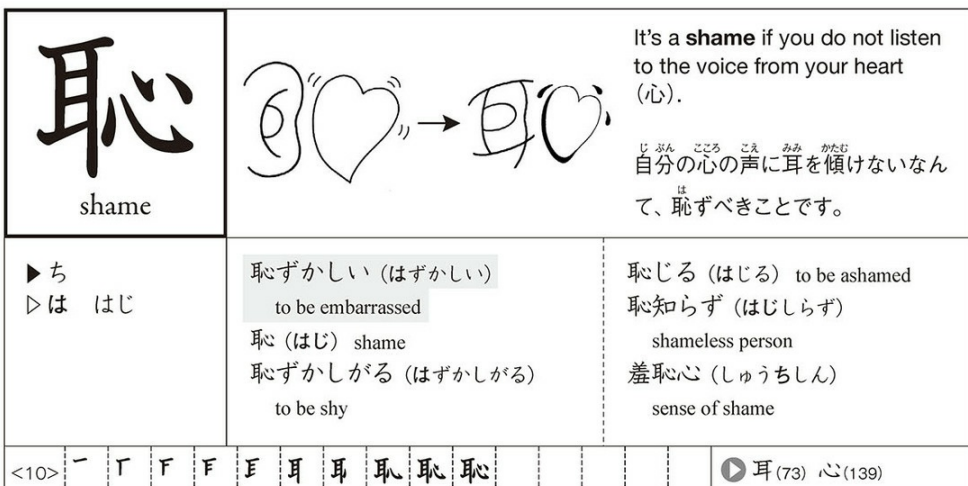 恥
shame
It's a shame if you do not listen
to the voice from your heart
(心).
じ ぶん こころ こえ みみ かたむ
自分の心の声に耳を傾けないなん
は
て、恥ずべきことです。
▶ ち
▷ は はじ
恥ずかしい (はずかしい)
to be embarrassed
恥 (はじ) shame
恥ずかしがる (はずかしがる)
to be shy
恥じる (はじる) to be ashamed
恥知らず (はじしらず)
shameless person
羞恥心 (しゅうちしん)
sense of shame
<10>
耳(73) 心(139)